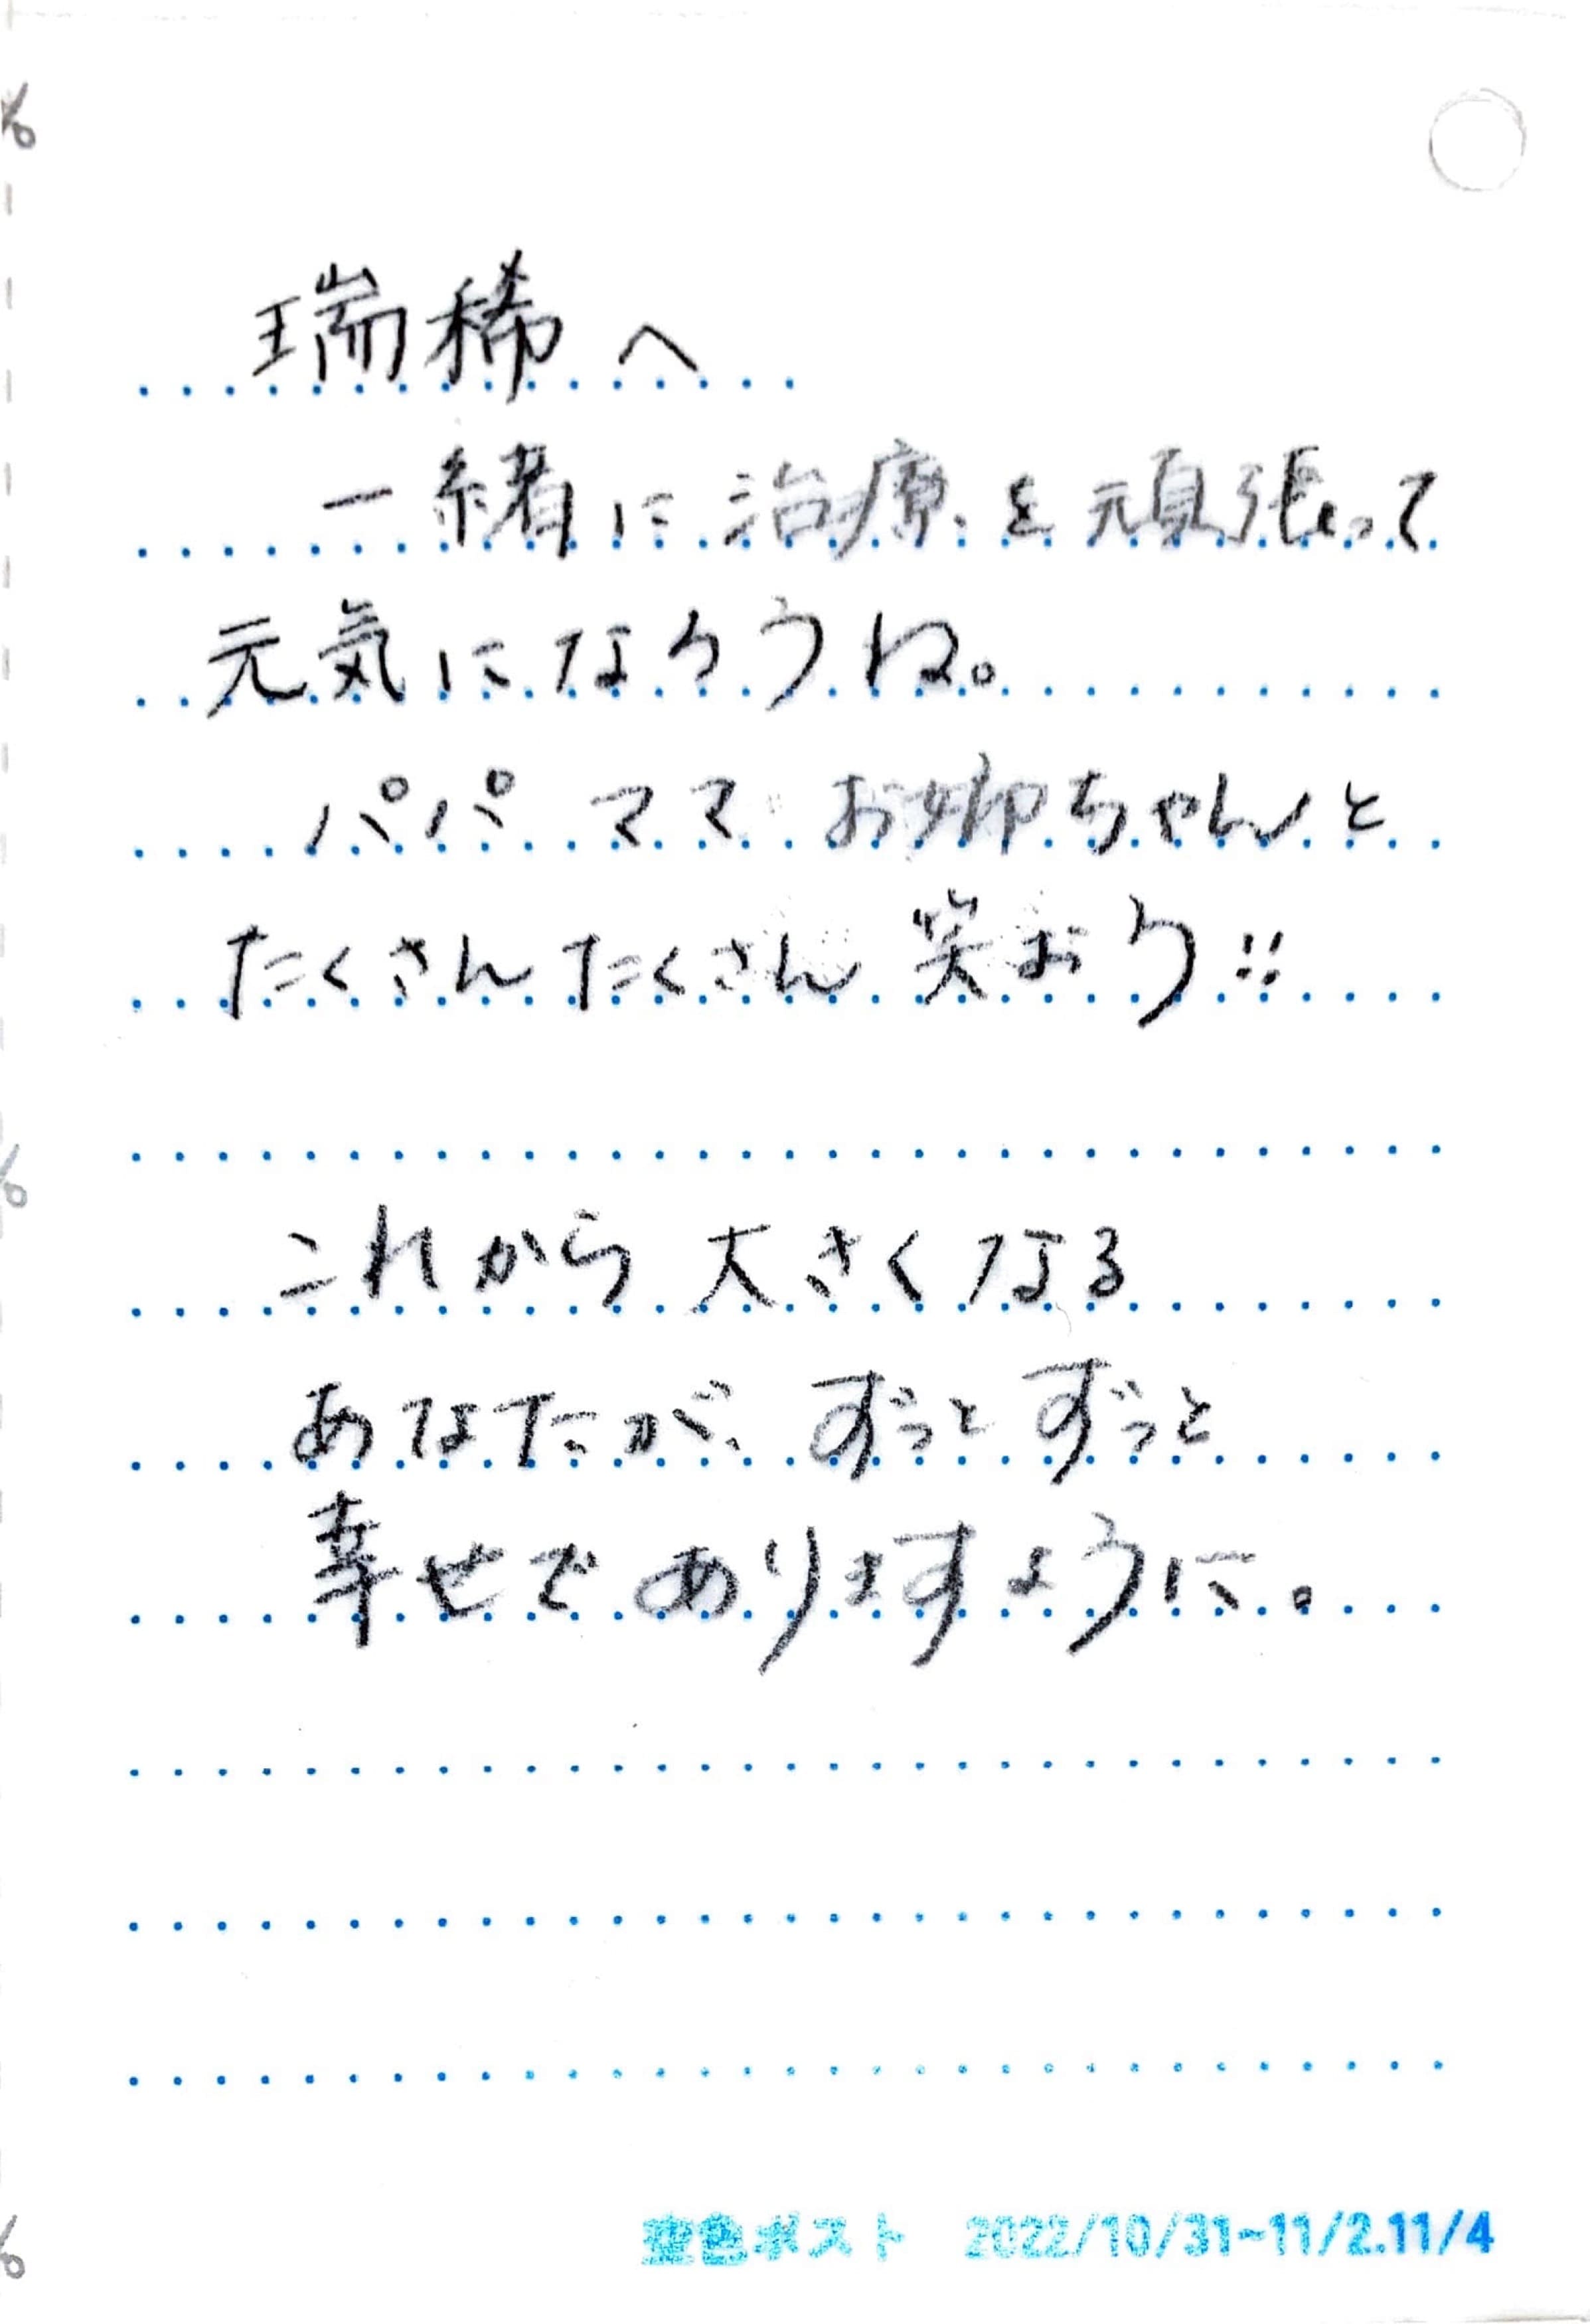 瑞稀へ
一緒に治療を頑張って
元気になろうね。
パパ ママ お姉ちゃんと
たくさんたくさん 笑おう!!
これから 大きくなる
あなたが、ずっと ずっと
幸せで ありますように。
空色ポスト 2022/10/31~11/2.11/4